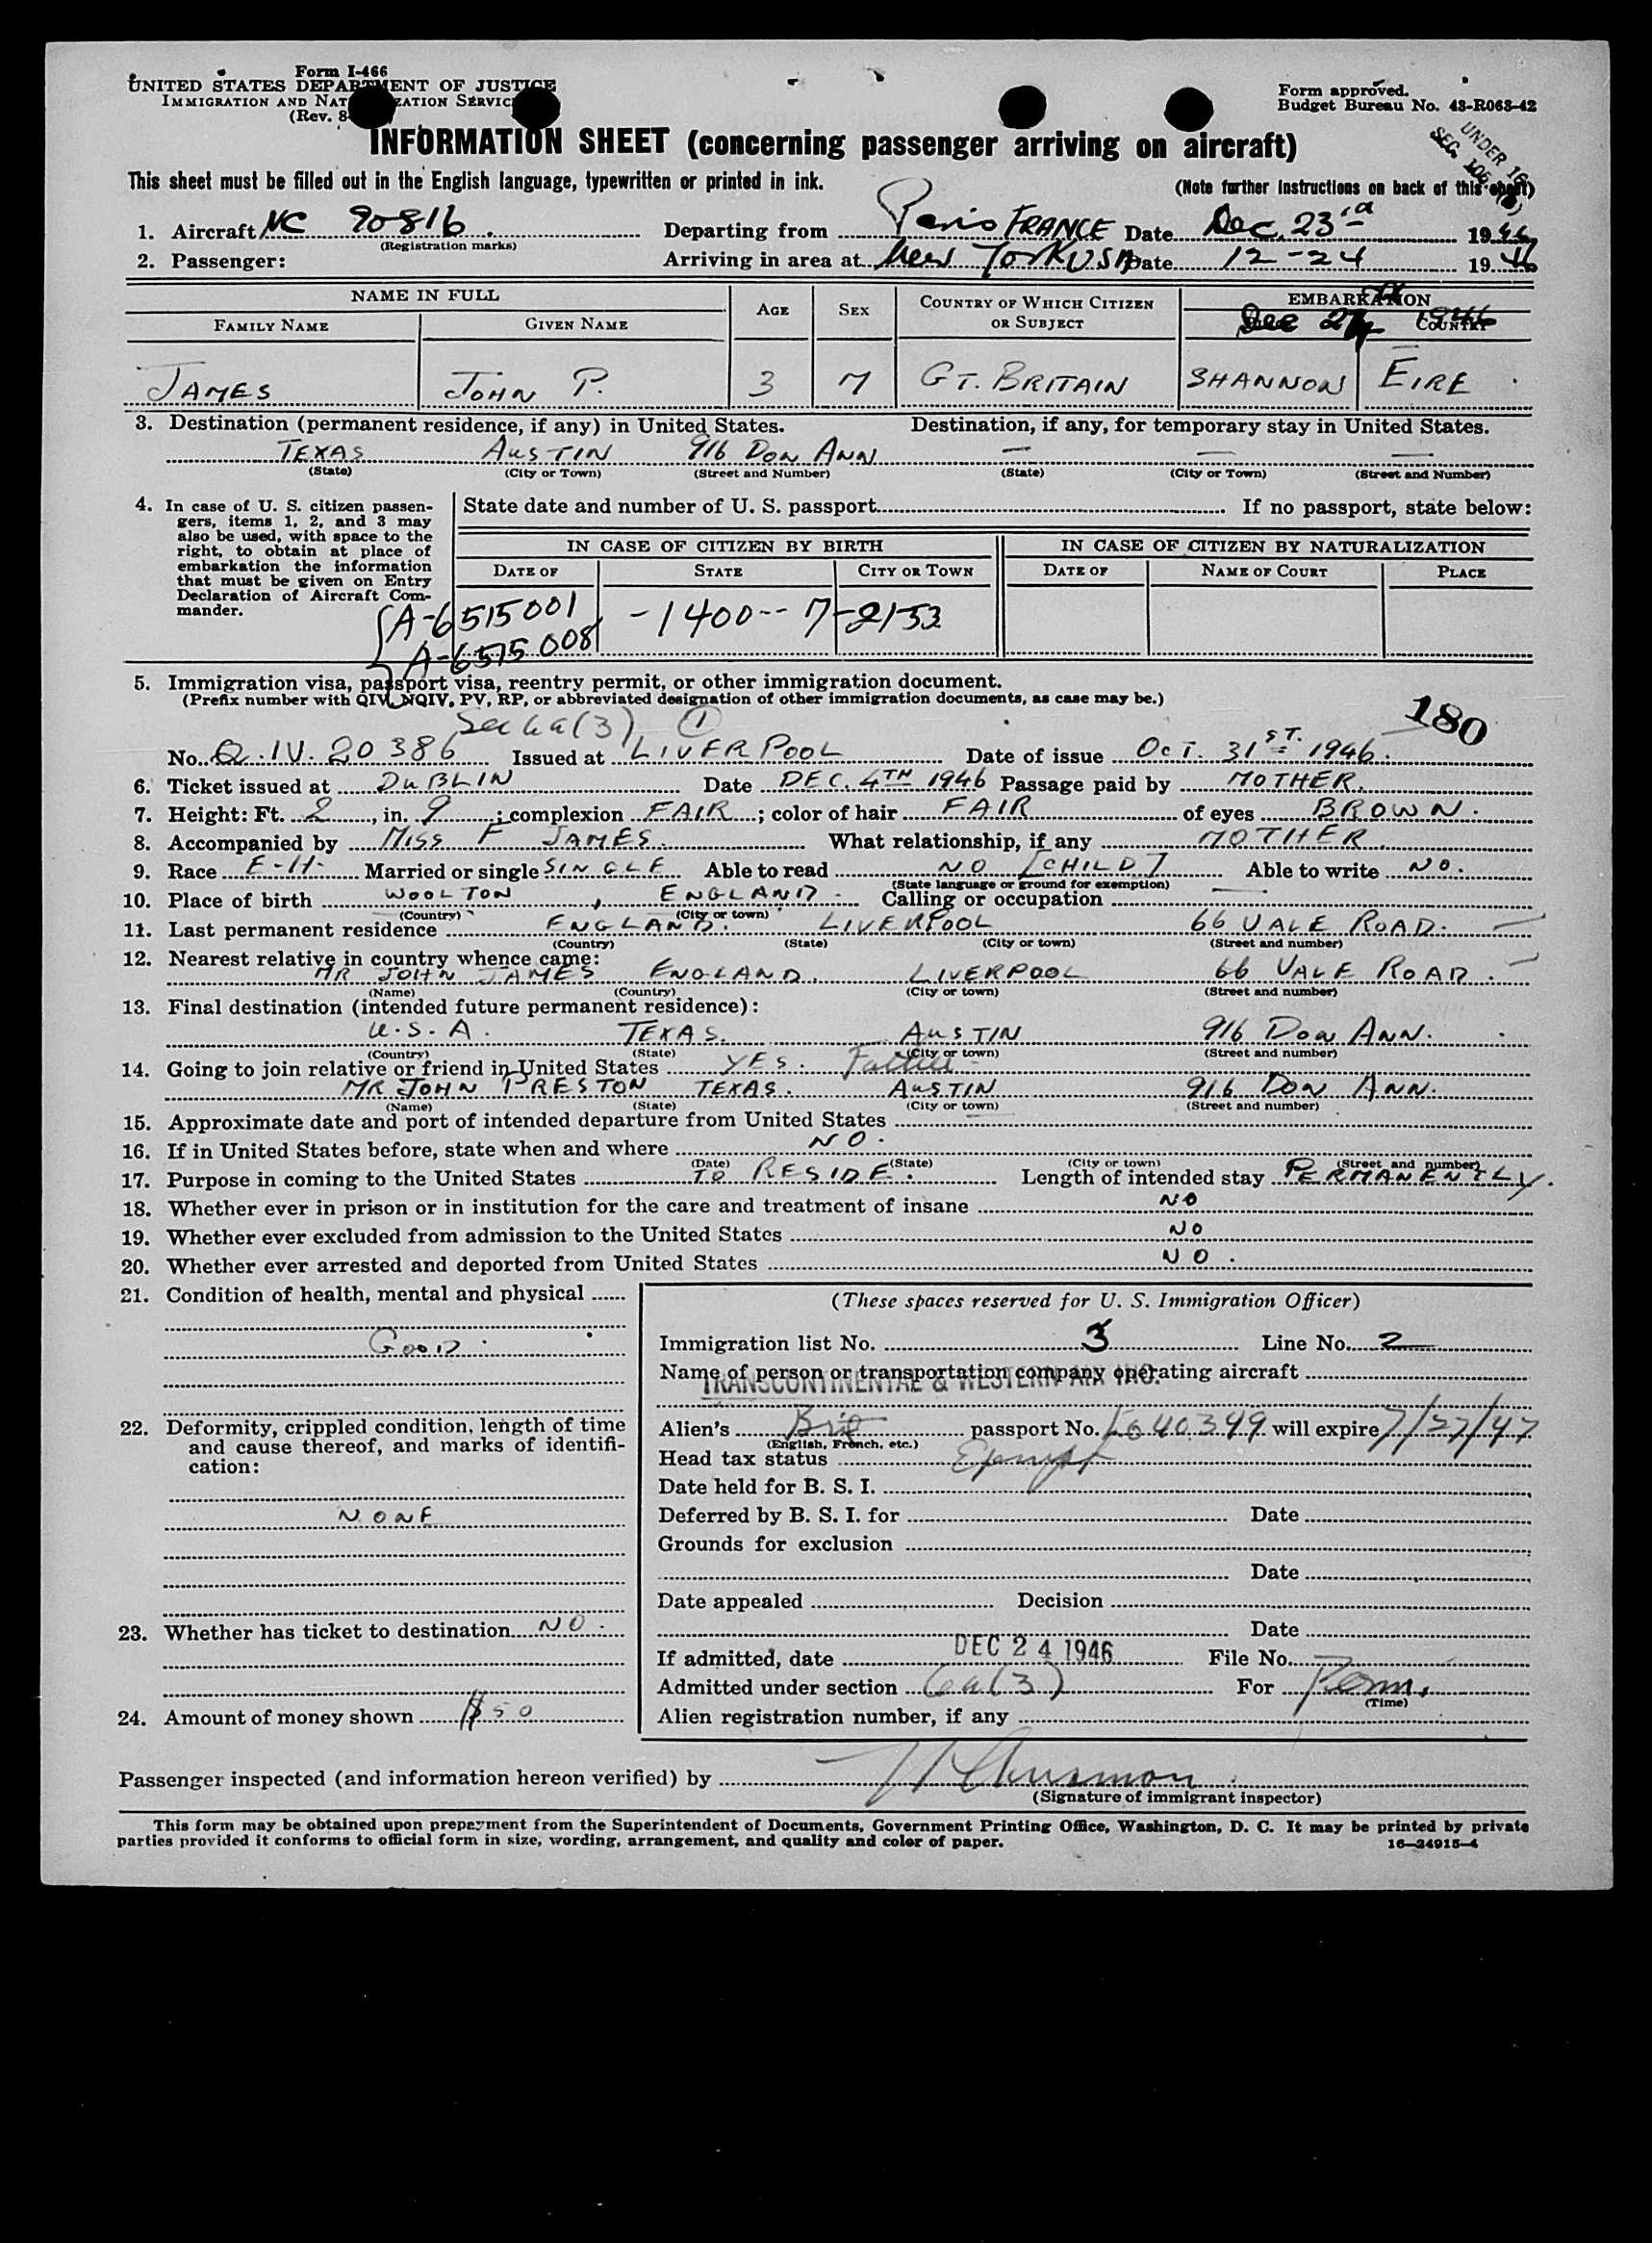 Form I-466
UNITED STATES DEPARTMENT OF JUSTICE
IMMIGRATION AND NAT ZATION SERVICE
(Rev. 8-
Form approved.
Budget Bureau No. 43-R063-42
UNDER 16
SEC. 105.
INFORMATION SHEET (concerning passenger arriving on aircraft)
This sheet must be filled out in the English language, typewritten or printed in ink.
(Note further instructions on back of this sheet)
1. Aircraft NC 90816 Departing from Paris FRANCE Date Dec. 23rd 1946
(Registration marks)
2. Passenger: Arriving in area at New York USA Date 12-24 1946
NAME IN FULL AGE SEX COUNTRY OF WHICH CITIZEN OR SUBJECT EMBARKATION
FAMILY NAME GIVEN NAME Dec 1946 COUNTRY
JAMES JOHN P. 3 M GT. BRITAIN SHANNON EIRE
3. Destination (permanent residence, if any) in United States. Destination, if any, for temporary stay in United States.
TEXAS AUSTIN 916 DON ANN — — —
(State) (City or Town) (Street and Number) (State) (City or Town) (Street and Number)
4. In case of U. S. citizen passengers, items 1, 2, and 3 may also be used, with space to the right, to obtain at place of embarkation the information that must be given on Entry Declaration of Aircraft Commander.
State date and number of U. S. passport If no passport, state below:
IN CASE OF CITIZEN BY BIRTH IN CASE OF CITIZEN BY NATURALIZATION
DATE OF STATE CITY OR TOWN DATE OF NAME OF COURT PLACE
A-6515001 -1400-- 7-2153
A-6515008
5. Immigration visa, passport visa, reentry permit, or other immigration document.
(Prefix number with QIV, NQIV, PV, RP, or abbreviated designation of other immigration documents, as case may be.)
Sec 6a(3) 1 180
No. Q.IV.20386 Issued at LIVERPOOL Date of issue OCT. 31ST. 1946.
6. Ticket issued at DUBLIN Date DEC. 4TH 1946 Passage paid by MOTHER.
7. Height: Ft. 2, in. 9; complexion FAIR; color of hair FAIR of eyes BROWN.
8. Accompanied by MISS F JAMES. What relationship, if any MOTHER.
9. Race E-H- Married or single SINGLE Able to read NO [CHILD] Able to write NO.
(State language or ground for exemption)
10. Place of birth WOOLTON, ENGLAND - Calling or occupation —
(Country) (City or town)
11. Last permanent residence ENGLAND. LIVERPOOL 66 VALE ROAD.
(Country) (State) (City or town) (Street and number)
12. Nearest relative in country whence came:
MR JOHN JAMES ENGLAND. LIVERPOOL 66 VALE ROAD.
(Name) (Country) (City or town) (Street and number)
13. Final destination (intended future permanent residence):
U.S.A. TEXAS. AUSTIN 916 DON ANN.
(Country) (State) (City or town) (Street and number)
14. Going to join relative or friend in United States YES. Father
MR JOHN PRESTON TEXAS. AUSTIN 916 DON ANN.
(Name) (State) (City or town) (Street and number)
15. Approximate date and port of intended departure from United States —
16. If in United States before, state when and where NO.
(Date) (State) (City or town) (Street and number)
17. Purpose in coming to the United States TO RESIDE. Length of intended stay PERMANENTLY.
18. Whether ever in prison or in institution for the care and treatment of insane NO
19. Whether ever excluded from admission to the United States NO
20. Whether ever arrested and deported from United States NO.
21. Condition of health, mental and physical
GOOD.
22. Deformity, crippled condition, length of time and cause thereof, and marks of identification:
NONE
23. Whether has ticket to destination NO.
24. Amount of money shown $50
(These spaces reserved for U. S. Immigration Officer)
Immigration list No. 3 Line No. 2
Name of person or transportation company operating aircraft
TRANSCONTINENTAL & WESTERN AIR INC.
Alien's Brit passport No. 640349 will expire 7/27/47
(English, French, etc.)
Head tax status Exempt
Date held for B. S. I.
Deferred by B. S. I. for Date
Grounds for exclusion
Date
Date appealed Decision
Date
If admitted, date DEC 24 1946 File No.
Admitted under section 6a(3) For Perm.
(Time)
Alien registration number, if any
Passenger inspected (and information hereon verified) by
(Signature of immigrant inspector)
This form may be obtained upon prepayment from the Superintendent of Documents, Government Printing Office, Washington, D. C. It may be printed by private
parties provided it conforms to official form in size, wording, arrangement, and quality and color of paper. 16—24915-4